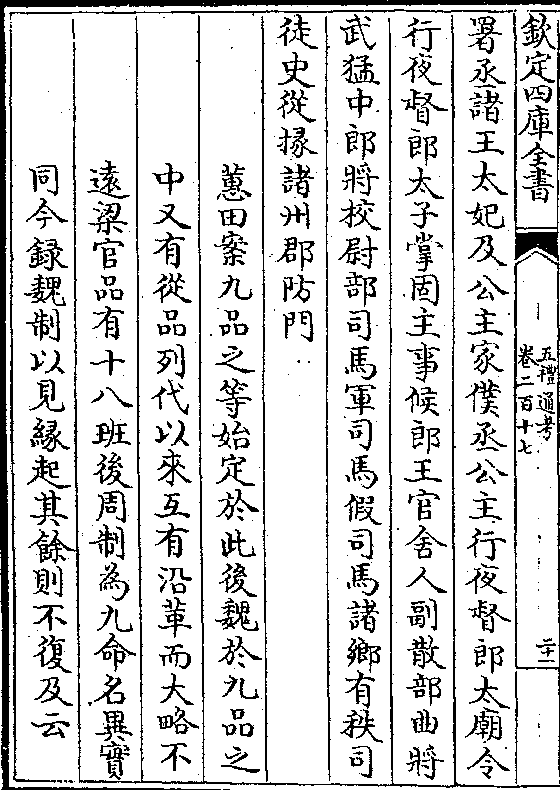 欽定四庫全書
五禮通考
卷二百十七
二十二
署丞諸王太妃及公主家僕丞公主行夜督郎太廟令
行夜督郎太子掌固主事候郎王官舍人副散部曲將
武猛中郎將校尉部司馬軍司馬假司馬諸鄉有秩司
徒史從掾諸州郡防門
蕙田案九品之等始定於此後魏於九品之
中又有從品列代以來互有沿革而大略不
遠梁官品有十八班後周制為九命名異實
同今録魏制以見縁起其餘則不復及云